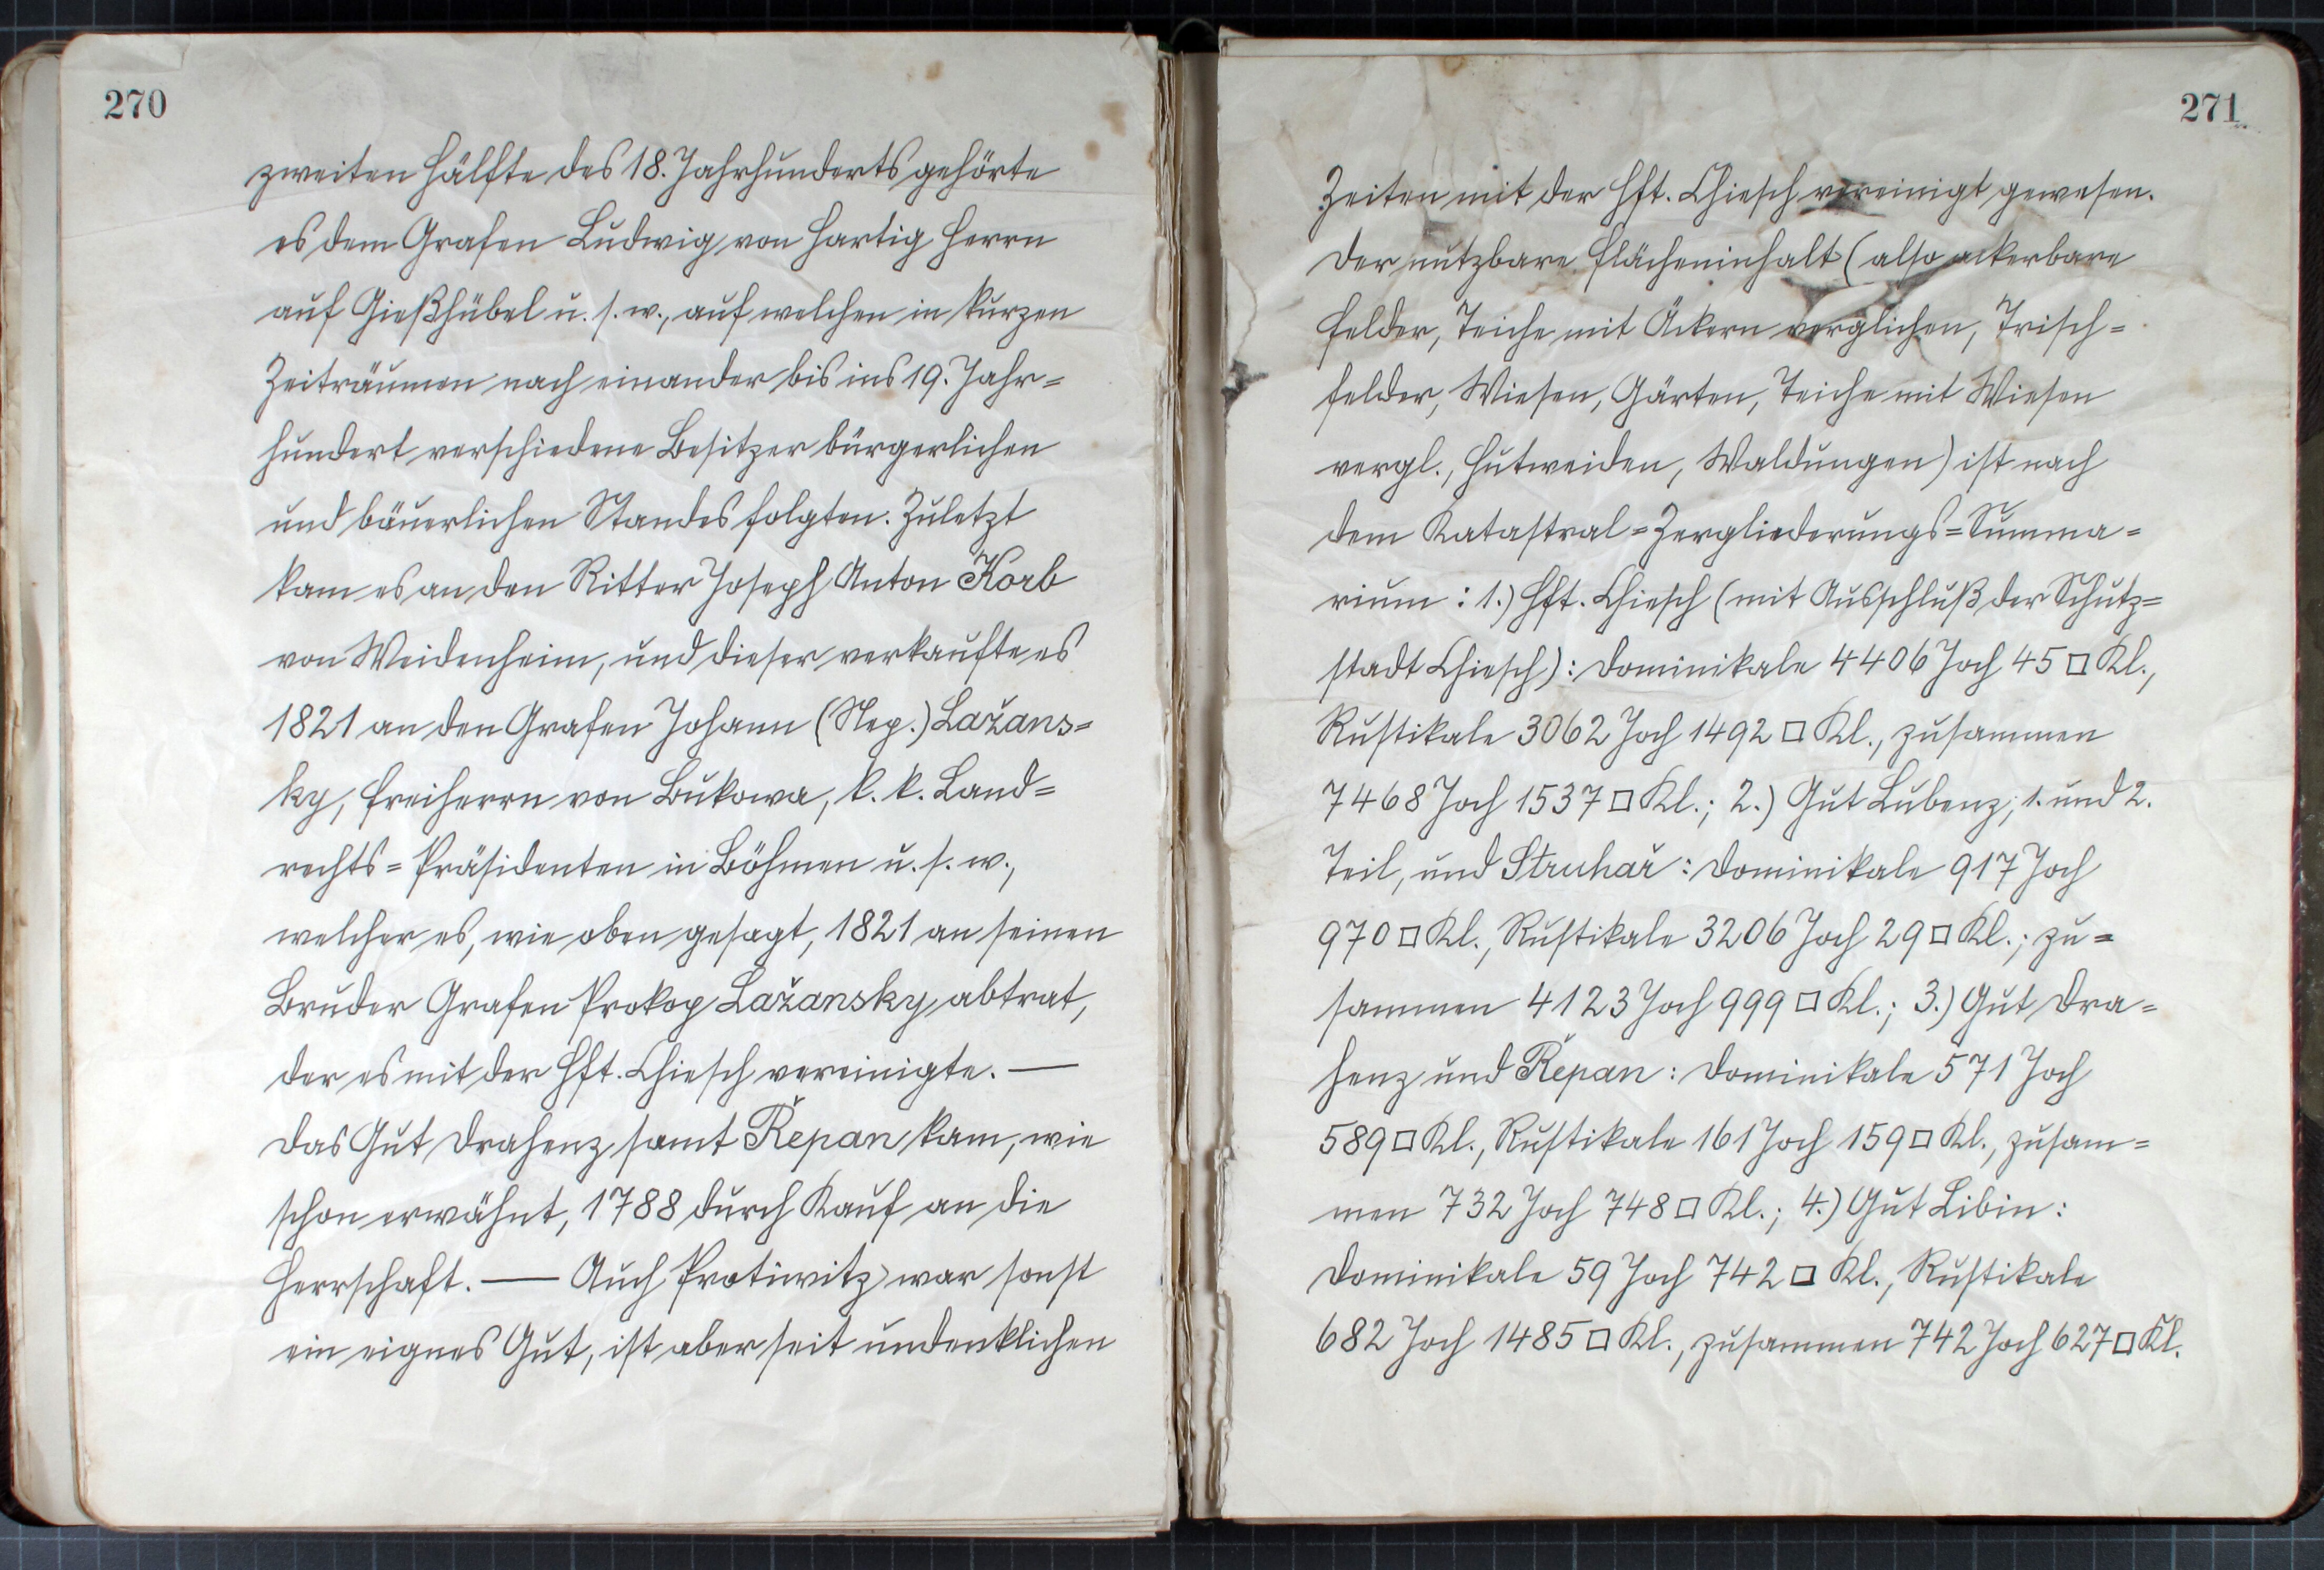 270
zweiten Hälfte des 18. Jahrhunderts gehörte
es dem Grafen Ludwig von Hartig Herrn
auf Gießhübel u. s. w., auf welchen in kurzen
Zeiträumen nach einander bis ins 19. Jahr=
hundert verschiedene Besitzer bürgerlichen
und bäuerlichen Standes folgten. Zuletzt
kam es an den Ritter Joseph Anton Korb
von Weidenheim, und dieser verkaufte es
1821 an den Grafen Johann (Nep.) Lažans=
ky, Freiherrn von Bukowa, k. k. Land=
rechts=Präsidenten in Böhmen u. s. w.,
welcher es, wie oben gesagt, 1821 an seinen
Bruder Grafen Prokop Lažansky abtrat,
der es mit der Hft. Chiesch vereinigte. —
Das Gut Drahenz samt Řepan kam, wie
schon erwähnt, 1788 durch Kauf an die
Herrschaft. — Auch Protiwitz war sonst
ein eignes Gut, ist aber seit undenklichen
271
Zeiten mit der Hft. Chiesch vereinigt gewesen.
Der nutzbare Flächeninhalt (also ackerbare
Felder, Teiche mit Äckern verglichen, Trisch=
felder, Wiesen, Gärten, Teiche mit Wiesen
vergl., Hutweiden, Waldungen) ist nach
dem Katastral=Zergliederungs=Summa=
rium: 1.) Hft. Chiesch (mit Ausschluß der Schutz=
stadt Chiesch): Dominikale 4406 Joch 45 □ Kl.,
Rustikale 3062 Joch 1492 □ Kl., zusammen
7468 Joch 1537 □ Kl.; 2.) Gut Lubenz, 1. und 2.
Teil, und Struhař: Dominikale 917 Joch
970 □ Kl., Rustikale 3206 Joch 29 □ Kl.; zu=
sammen 4123 Joch 999 □ Kl.; 3.) Gut Dra=
henz und Řepan: Dominikale 571 Joch
589 □ Kl., Rustikale 161 Joch 159 □ Kl., zusam=
men 732 Joch 748 □ Kl.; 4.) Gut Libin:
Dominikale 59 Joch 742 □ Kl., Rustikale
682 Joch 1485 □ Kl., zusammen 742 Joch 627 □ Kl.